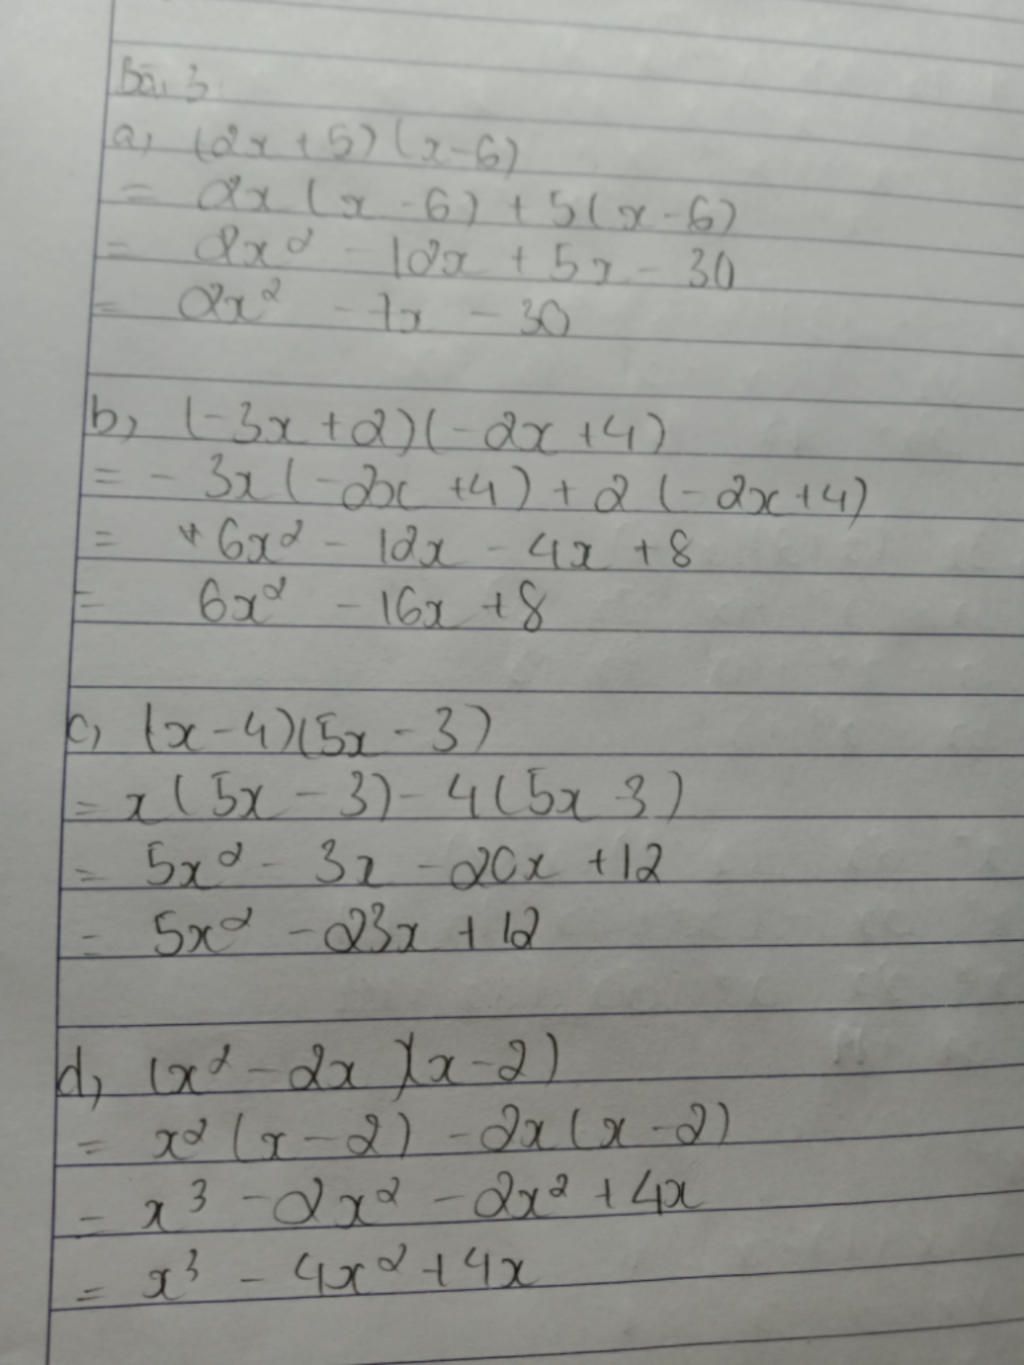 Bài 3
a, (2x + 5)(x - 6)
= 2x (x - 6) + 5(x - 6)
= 2x² - 12x + 5x - 30
= 2x² - 7x - 30
b, (-3x + 2)(-2x + 4)
= - 3x (-2x + 4) + 2 (-2x + 4)
= + 6x² - 12x - 4x + 8
= 6x² - 16x + 8
c, (x - 4)(5x - 3)
= x (5x - 3) - 4 (5x 3)
= 5x² - 3x - 20x + 12
= 5x² - 23x + 12
d, (x² - 2x)(x - 2)
= x² (x - 2) - 2x (x - 2)
= x³ - 2x² - 2x² + 4x
= x³ - 4x² + 4x